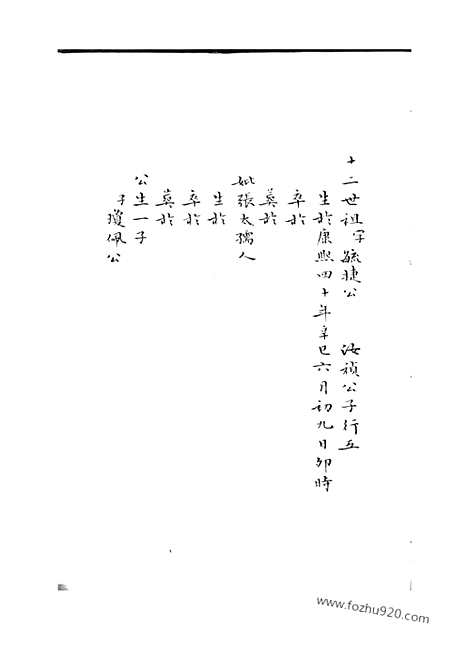 十二世祖字毓捷公 汝禎公子行五
生於康熙四十年辛巳六月初九日卯時
卒於
葬於
妣張太孺人
生於
卒於
葬於
公生一子
子瓊佩公
www.fozhu920.com